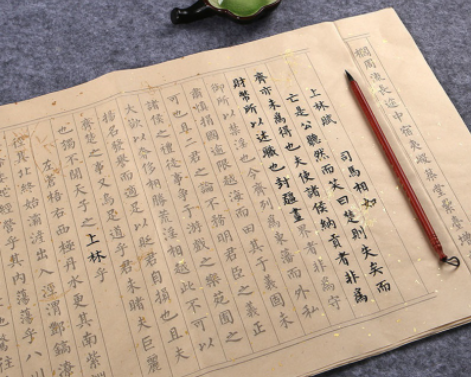 櫚周流長途中宿夫嵕築堂纍臺
上林賦
司馬相如
亡是公聽然而笑曰楚則失矣而
齊亦未為得也夫使諸侯納貢者非為
財幣所以述職也封疆畫界者非為守
御所以禁淫也今齊列為東藩而外私
肅慎捐國逾限越海而田其于義固未
可也且二君之論不務明君臣之義正
諸侯之禮徒事爭于游戲之樂苑囿之
大欲以奢侈相勝荒淫相越此不可以
揚名發譽而適足以貶君自損也且夫
齊楚之事又烏足道乎君未睹夫巨麗
也獨不聞天子之上林乎
左蒼梧右西極丹水更其南紫淵
徑其北終始灞滻出入涇渭酆鎬潦
蛇經營乎其內蕩蕩乎八川